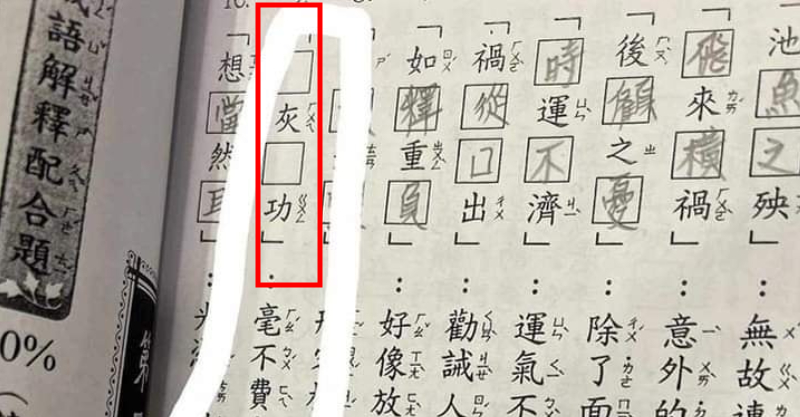 「池魚之殃」：無故
「飛來橫禍」：意外的
「後顧之憂」：除了面
「時運不濟」：運氣不
「禍從口出」：勸誡人
「如釋重負」：好像放
「□灰□功」：毫不費
「想當然耳」：
語解釋配合題
0%
第